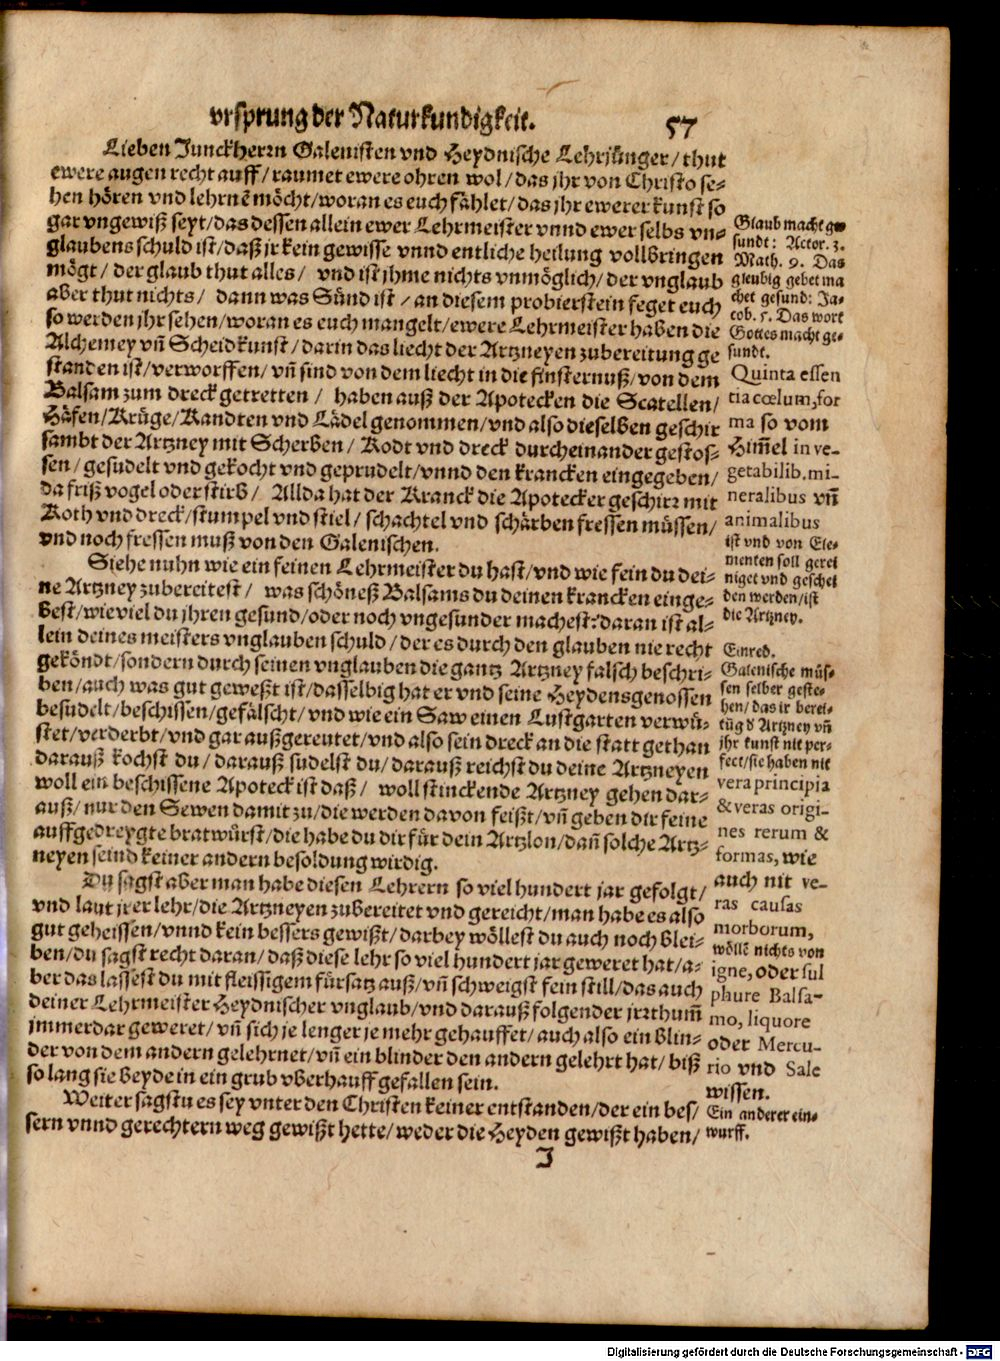 vrsprung der Naturkundigkeit. 57
Lieben Junckherrn Galenisten vnd Heydnische Lehrjünger/thut
ewere augen recht auff/raumet ewere ohren wol/das jhr von Christo se-
hen hören vnd lehrnē möcht/woran es euch fählet/das jhr ewerer kunst so
gar vngewiß seyt/das dessen allein ewer Lehrmeister vnnd ewer selbs vn-
glaubens schuld ist/daß jr kein gewisse vnnd entliche heilung vollbringen
mögt/der glaub thut alles/ vnd ist jhme nichts vnmöglich/der vnglaub
aber thut nichts/ dann was Sünd ist/an diesem probierstein feget euch
so werden jhr sehen/woran es euch mangelt/ewere Lehrmeister haben die
Alchemey vn̄ Scheidkunst/darin das liecht der Artzneyen zubereitung ge
standen ist/verworffen/vn̄ sind von dem liecht in die finsternuß/von dem
Balsam zum dreck getretten/ haben auß der Apotecken die Scatellen/
Häfen/Krüge/Kandten vnd Lädel genommen/vnd also dieselben geschir
sambt der Artzney mit Scherben/ Kodt vnd dreck durcheinander gestos-
sen/gesudelt vnd gekocht vnd geprudelt/vnnd den krancken eingegeben/
da friß vogel oder stirb/ Allda hat der Kranck die Apotecker geschirr mit
Koth vnd dreck/stumpel vnd stiel/schachtel vnd schärben fressen müssen/
vnd noch fressen muß von den Galenischen.
Siehe nuhn wie ein feinen Lehrmeister du hast/vnd wie fein du dei-
ne Artzney zubereitest/ was schöneß Balsams du deinen krancken einge-
best/wie viel du jhren gesund/oder noch vngesunder machest: daran ist al-
lein deines meisters vnglauben schuld/der es durch den glauben nie recht
geköndt/sondern durch seinen vnglauben die gantz Artzney falsch beschri-
ben/auch was gut gewest ist/dasselbig hat er vnd seine Heydensgenossen
besudelt/beschissen/gefälscht/vnd wie ein Saw einen Lustgarten verwü-
stet/verderbt/vnd gar außgereutet/vnd also sein dreck an die statt gethan
darauß kochst du/darauß sudelst du/darauß reichst du deine Artzneyen
woll ein beschissene Apoteck ist daß/ woll stinckende Artzney gehen dar-
auß/nur den Sewen damit zu/die werden davon feißt/vn̄ geben dir feine
auffgedreygte bratwürst/die habe du dir für dein Artzlon/dan̄ solche Artz-
neyen seind keiner andern besoldung wirdig.
Du sagst aber man habe diesen Lehrern so viel hundert jar gefolgt/
vnd laut jrer lehr/die Artzneyen zubereitet vnd gereicht/man habe es also
gut geheissen/vnnd kein bessers gewißt/darbey wöllest du auch noch blei-
ben/du sagst recht daran/daß diese lehr so viel hundert jar geweret hat/a-
ber das lassest du mit fleissigem fürsatz auß/vn̄ schweigst fein still/das auch
deiner Lehrmeister Heydnischer vnglaub/vnd darauß folgender jrrthum̄
jmmerdar geweret/vn̄ sich je lenger je mehr gehauffet/auch also ein blin-
der von dem andern gelehrnet/vn̄ ein blinder den andern gelehrt hat/biß
so lang sie beyde in ein grub vberhauff gefallen sein.
Weiter sagstu es sey vnter den Christen keiner entstanden/der ein bes/
sern vnnd gerechtern weg gewißt hette/weder die Heyden gewißt haben/
J
Glaub macht ge
sundt: Actor. 3.
Math. 9. Das
gleubig gebet ma
chet gesund: Ja-
cob. 5. Das wort
Gottes macht ge-
sundt.
Quinta essen
tia cœlum, for
ma so vom
Him̄el in ve-
getabilib. mi-
neralibus vn̄
animalibus
ist vnd von Ele-
menten soll gerei
niget vnd geschei
den werden/ist
die Artzney.
Einred.
Galenische müs-
sen selber geste-
hen/das ir berei-
tūg d Artzney vn̄
jhr kunst nit per-
fect/sie haben nit
vera principia
& veras origi-
nes rerum &
formas, wie
auch nit ve-
ras causas
morborum,
wöllē nichts von
igne, oder sul
phure Balsa-
mo, liquore
oder Mercu-
rio vnd Sale
wissen.
Ein anderer ein-
wurff.
Digitalisierung gefördert durch die Deutsche Forschungsgemeinschaft - DFG